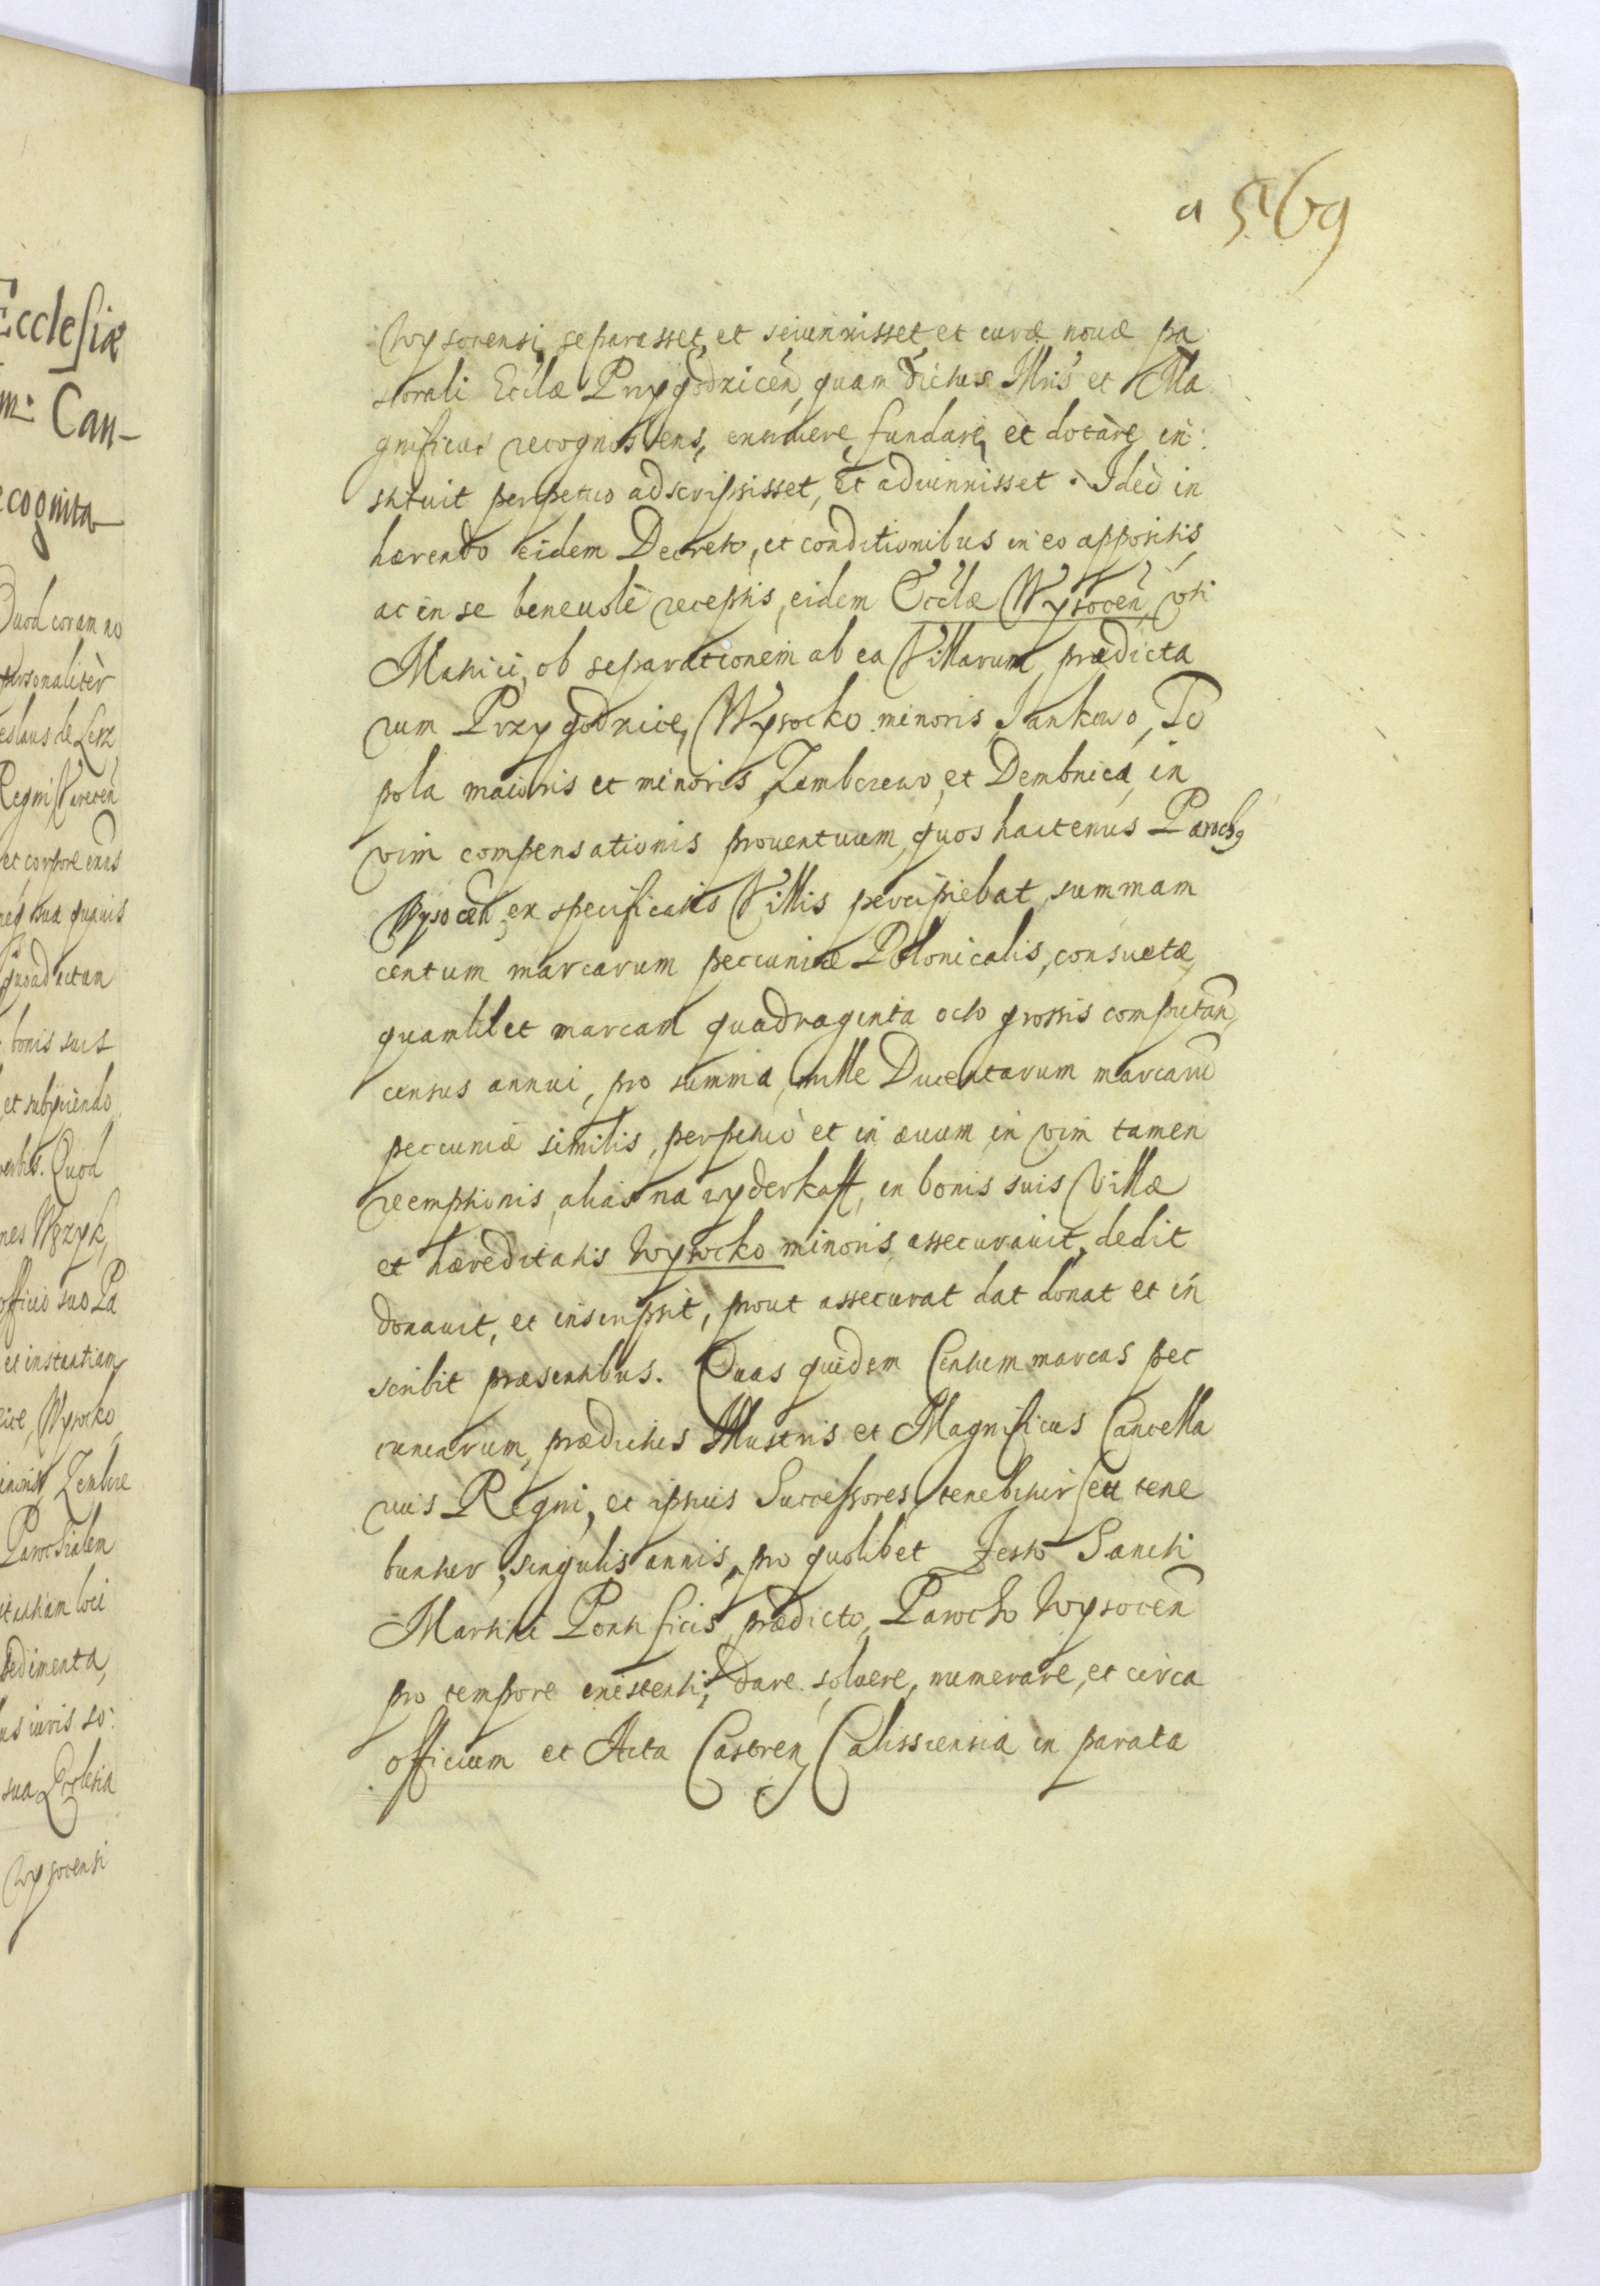 Ecclesiæ
m. Can-
ecognita
Quod coram no
personalitèr
eslaus de Lesz
Regni
et corpore
sua quavis
quoad actum
bonis suis
et subijciendo
Quod
nes Wężyk
officio suo Pa
et instantiam
Wysocko
Zembce
Parochialem
loci
pedimenta,
us iuris so:
sua Ecclesia
Wysocensi
a 569
Wysocensi, separasset, et seiunxisset, et curæ nouæ pa
storali Ecclæ Przygodnicen̄, quam dictus Illris et Ma
gnificus recognoscens, extruere, fundare, et dotare in:
stituit perpetuo adscripsisset, et adiunxisset. Ideò in
hærendo eidem Decreto, et conditionibus in eo appositis,
ac in se beneuolè receptis, eidem Ecclæ Wysocen̄, uti
Matrici, ob separationem ab ea Villarum prædicta
rum Przygodnice, Wysocko minoris, Jankowo, To
pola maioris et minoris, Zembczewo, et Dembnica, in
vim compensationis prouentuum, quos hactenus Paroch9
Wysocen̄, ex specificatis Villis percipiebat, summam
centum marcarum pecuniæ Polonicalis, consuetæ,
quamlibet marcam quadraginta octo grossis computan̄,
census annui, pro summa, mille Ducentarum marcarū
peccuniæ similis, perpetuò et in æuum, in vim tamen
reemptionis, alias na wyderkaff, in bonis suis Villæ
et hæreditatis Wysocko minoris, assecurauit, dedit
donauit, et inscripsit, prout assecurat dat donat et in
scribit præsentibus. Quas quidem Centum marcas pec
cuniarum, prædictus Illustris et Magnificus Cancella
rius Regni, et ipsius Successores, tenebitur seu tene
buntur, singulis annis, pro quolibet Festo Sancti
Martini Pontificis, prædicto, Parocho Wysocen̄
pro tempore existenti, dare, soluere, numerare, et circa
officium et Acta Castren̄ Calissiensia in parata